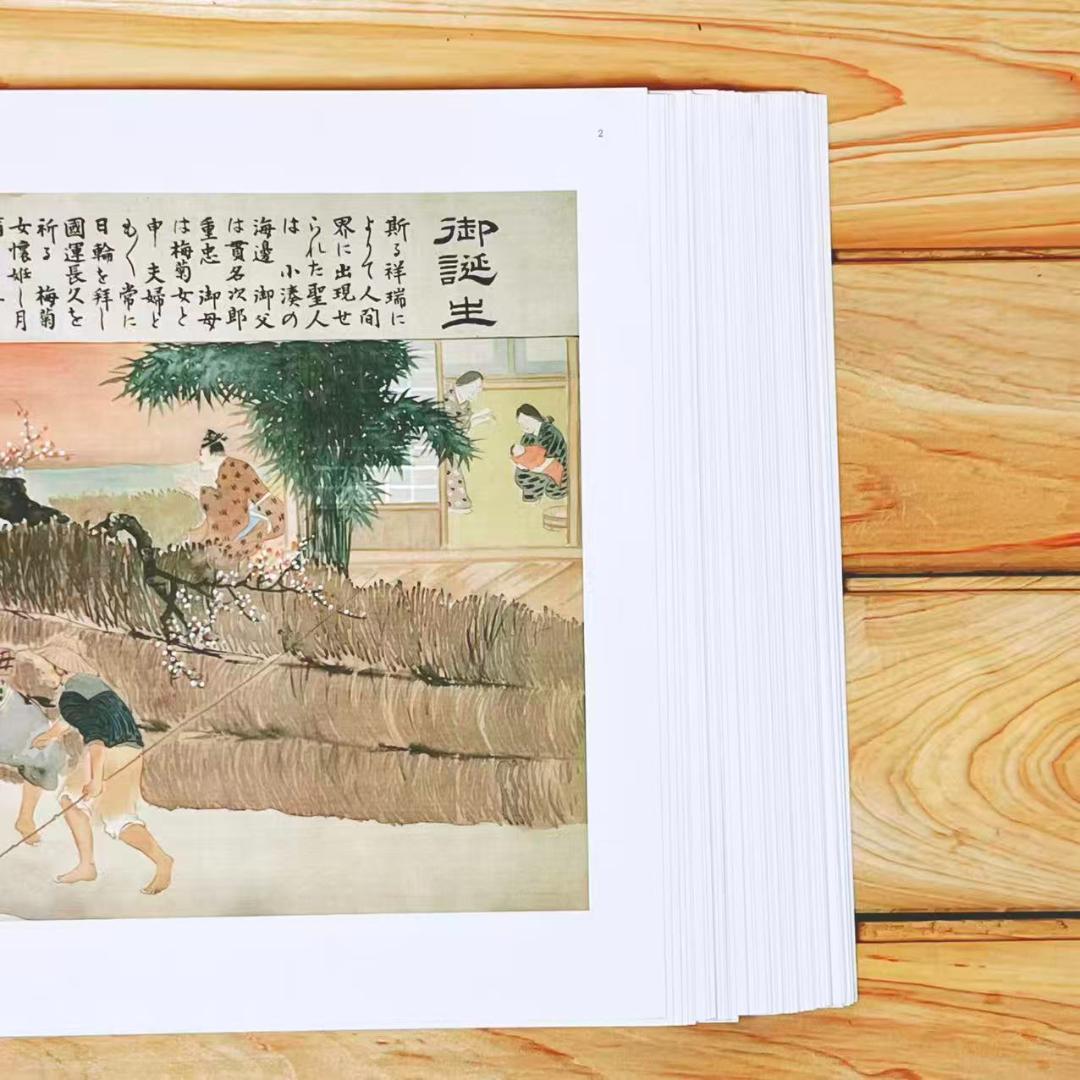 2
御誕生
斯る祥瑞に
よりて人間
界に出現せ
られた聖人
は 小湊の
海邊 御父
は貫名次郎
重忠 御母
は梅菊女と
申 夫婦と
も〱常に
日輪を拜し
國運長久を
祈る 梅菊
女懐妊し月